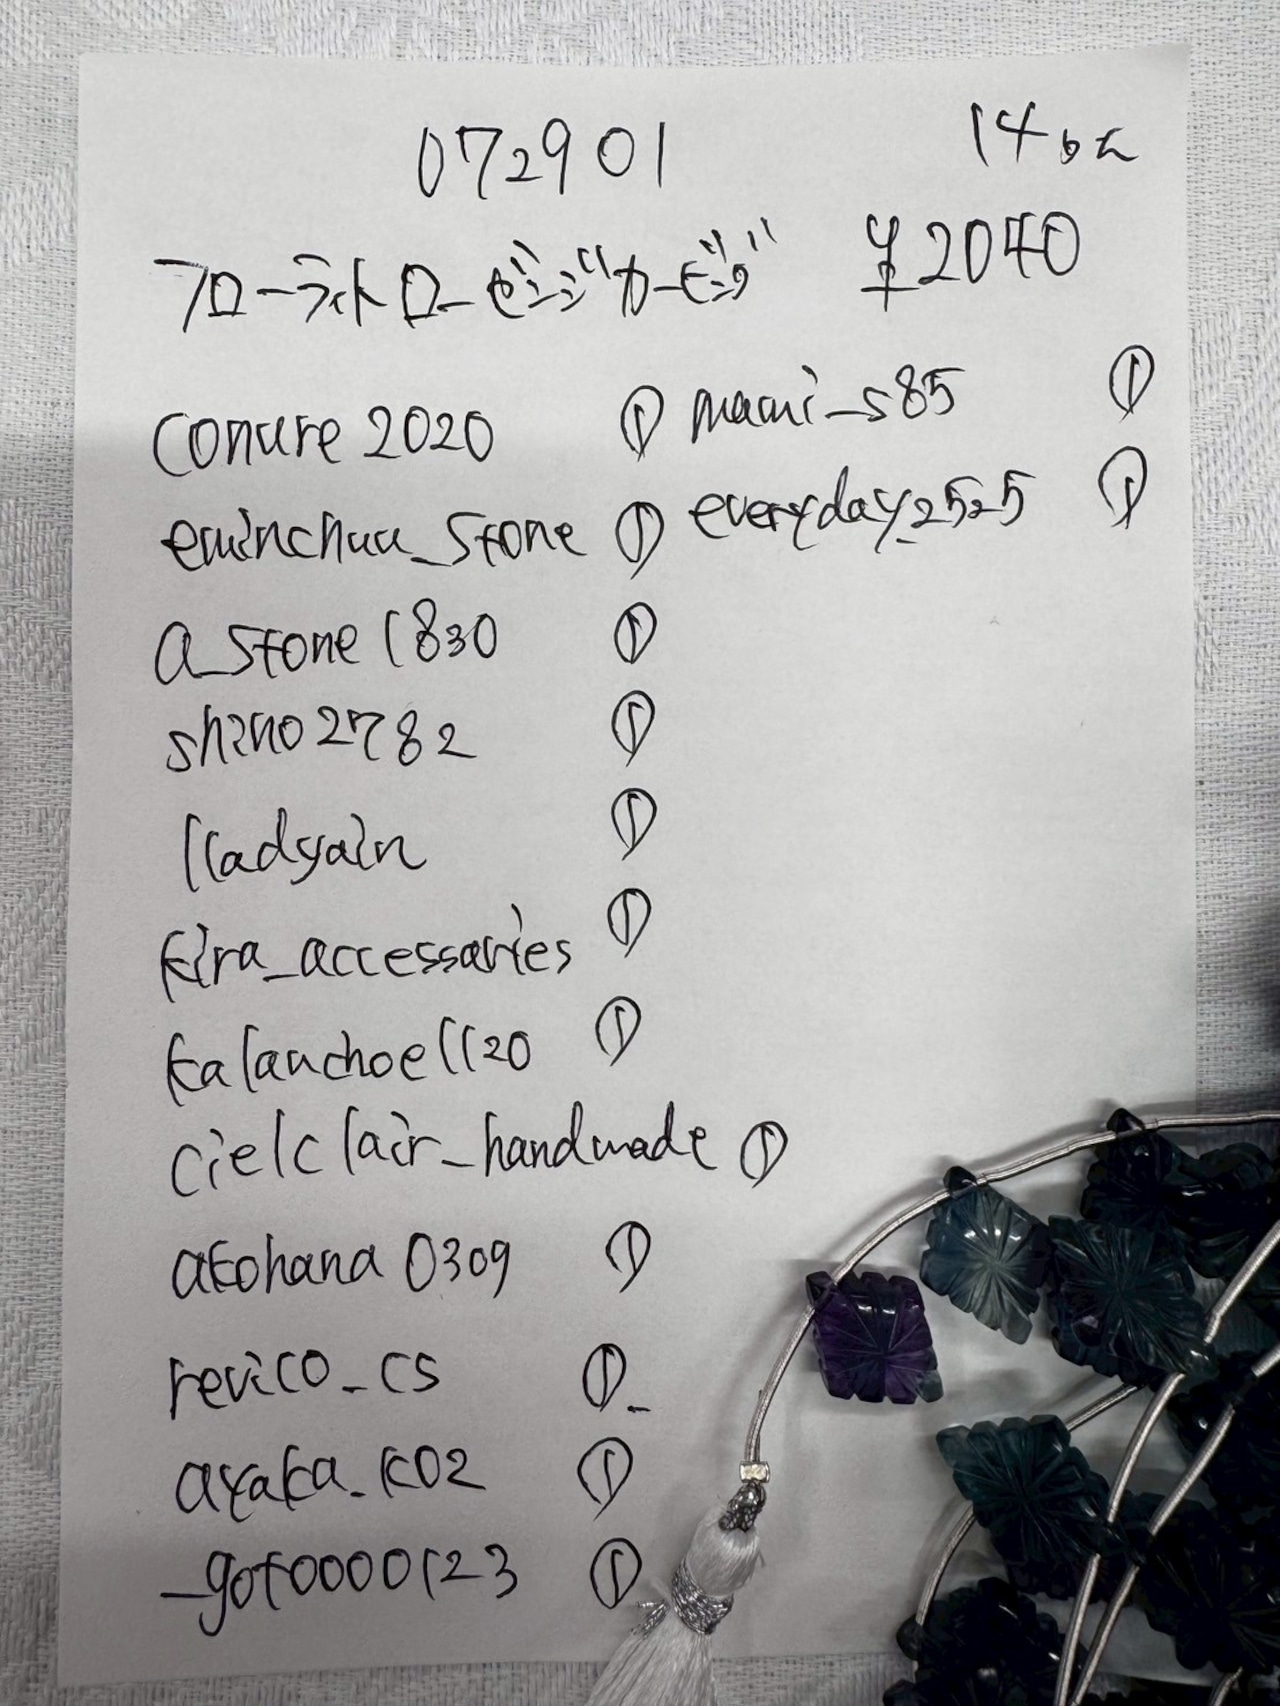 072901
14ほん
フローライトローゼンジカービング ¥2040
conure2020 ①
eminchuu_stone ①
a_stone1830 ①
shino2782 ①
lladyain ①
kira_accessaries ①
kalanchoe1120 ①
cielclair_handmade ①
akohana0309 ①
revico_cs ①
ayaka_k02 ①
_goto0000123 ①
mami_s85 ①
everyday_2525 ①